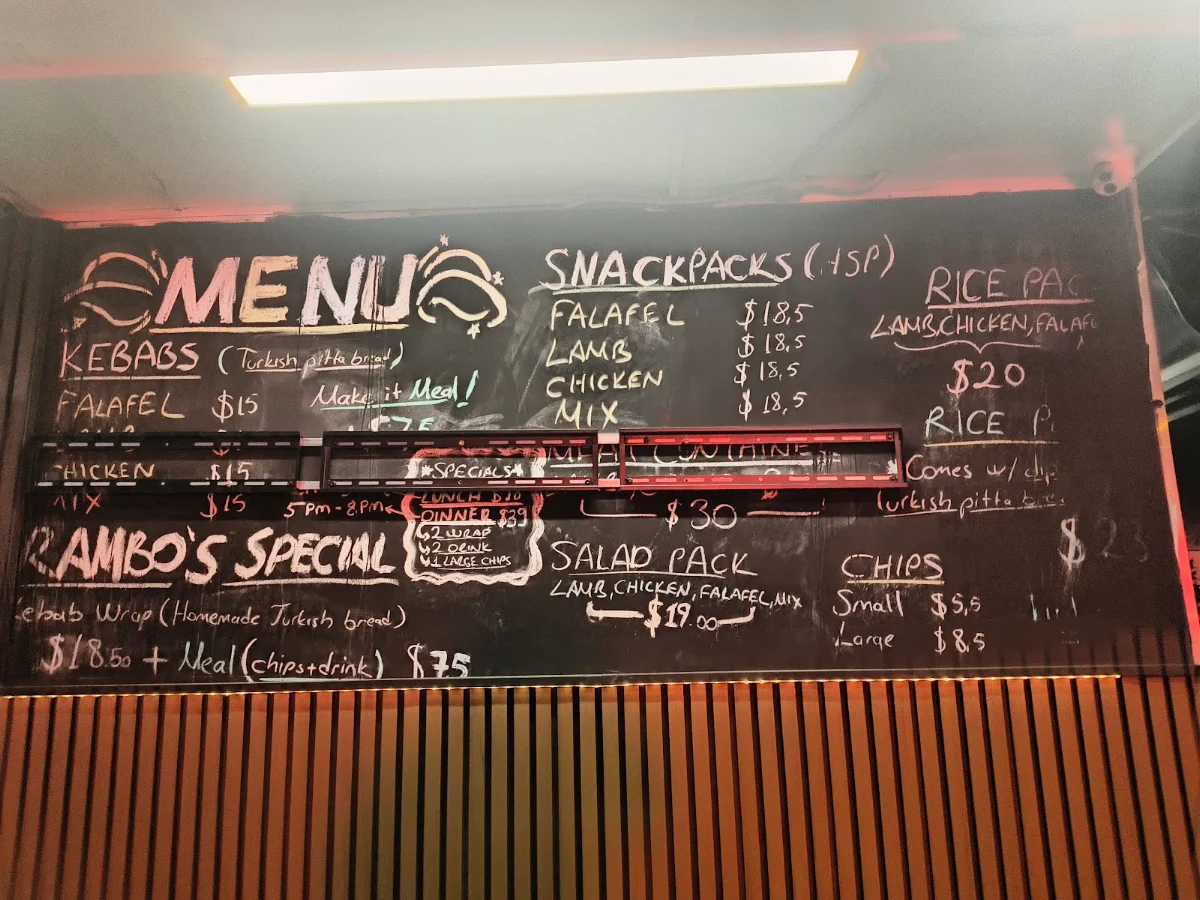 MENU
KEBABS (Turkish pitta bread)
FALAFEL $15
Make it Meal!
CHICKEN $15
MIX $15
5PM-8PM
SPECIALS
LUNCH
DINNER $39
2 WRAP
2 DRINK
1 LARGE CHIPS
RAMBO'S SPECIAL
Kebab Wrap (Homemade Turkish bread)
$18.50 + Meal (chips+drink) $7.5
SNACKPACKS (HSP)
FALAFEL $18,5
LAMB $18,5
CHICKEN $18,5
MIX $18,5
MEAT CONTAINER
$30
SALAD PACK
LAMB, CHICKEN, FALAFEL, MIX
$19.00
RICE PAC
LAMB, CHICKEN, FALAF
$20
RICE P
Comes w/ dip
Turkish pitta bre
$23
CHIPS
Small $5,5
Large $8,5